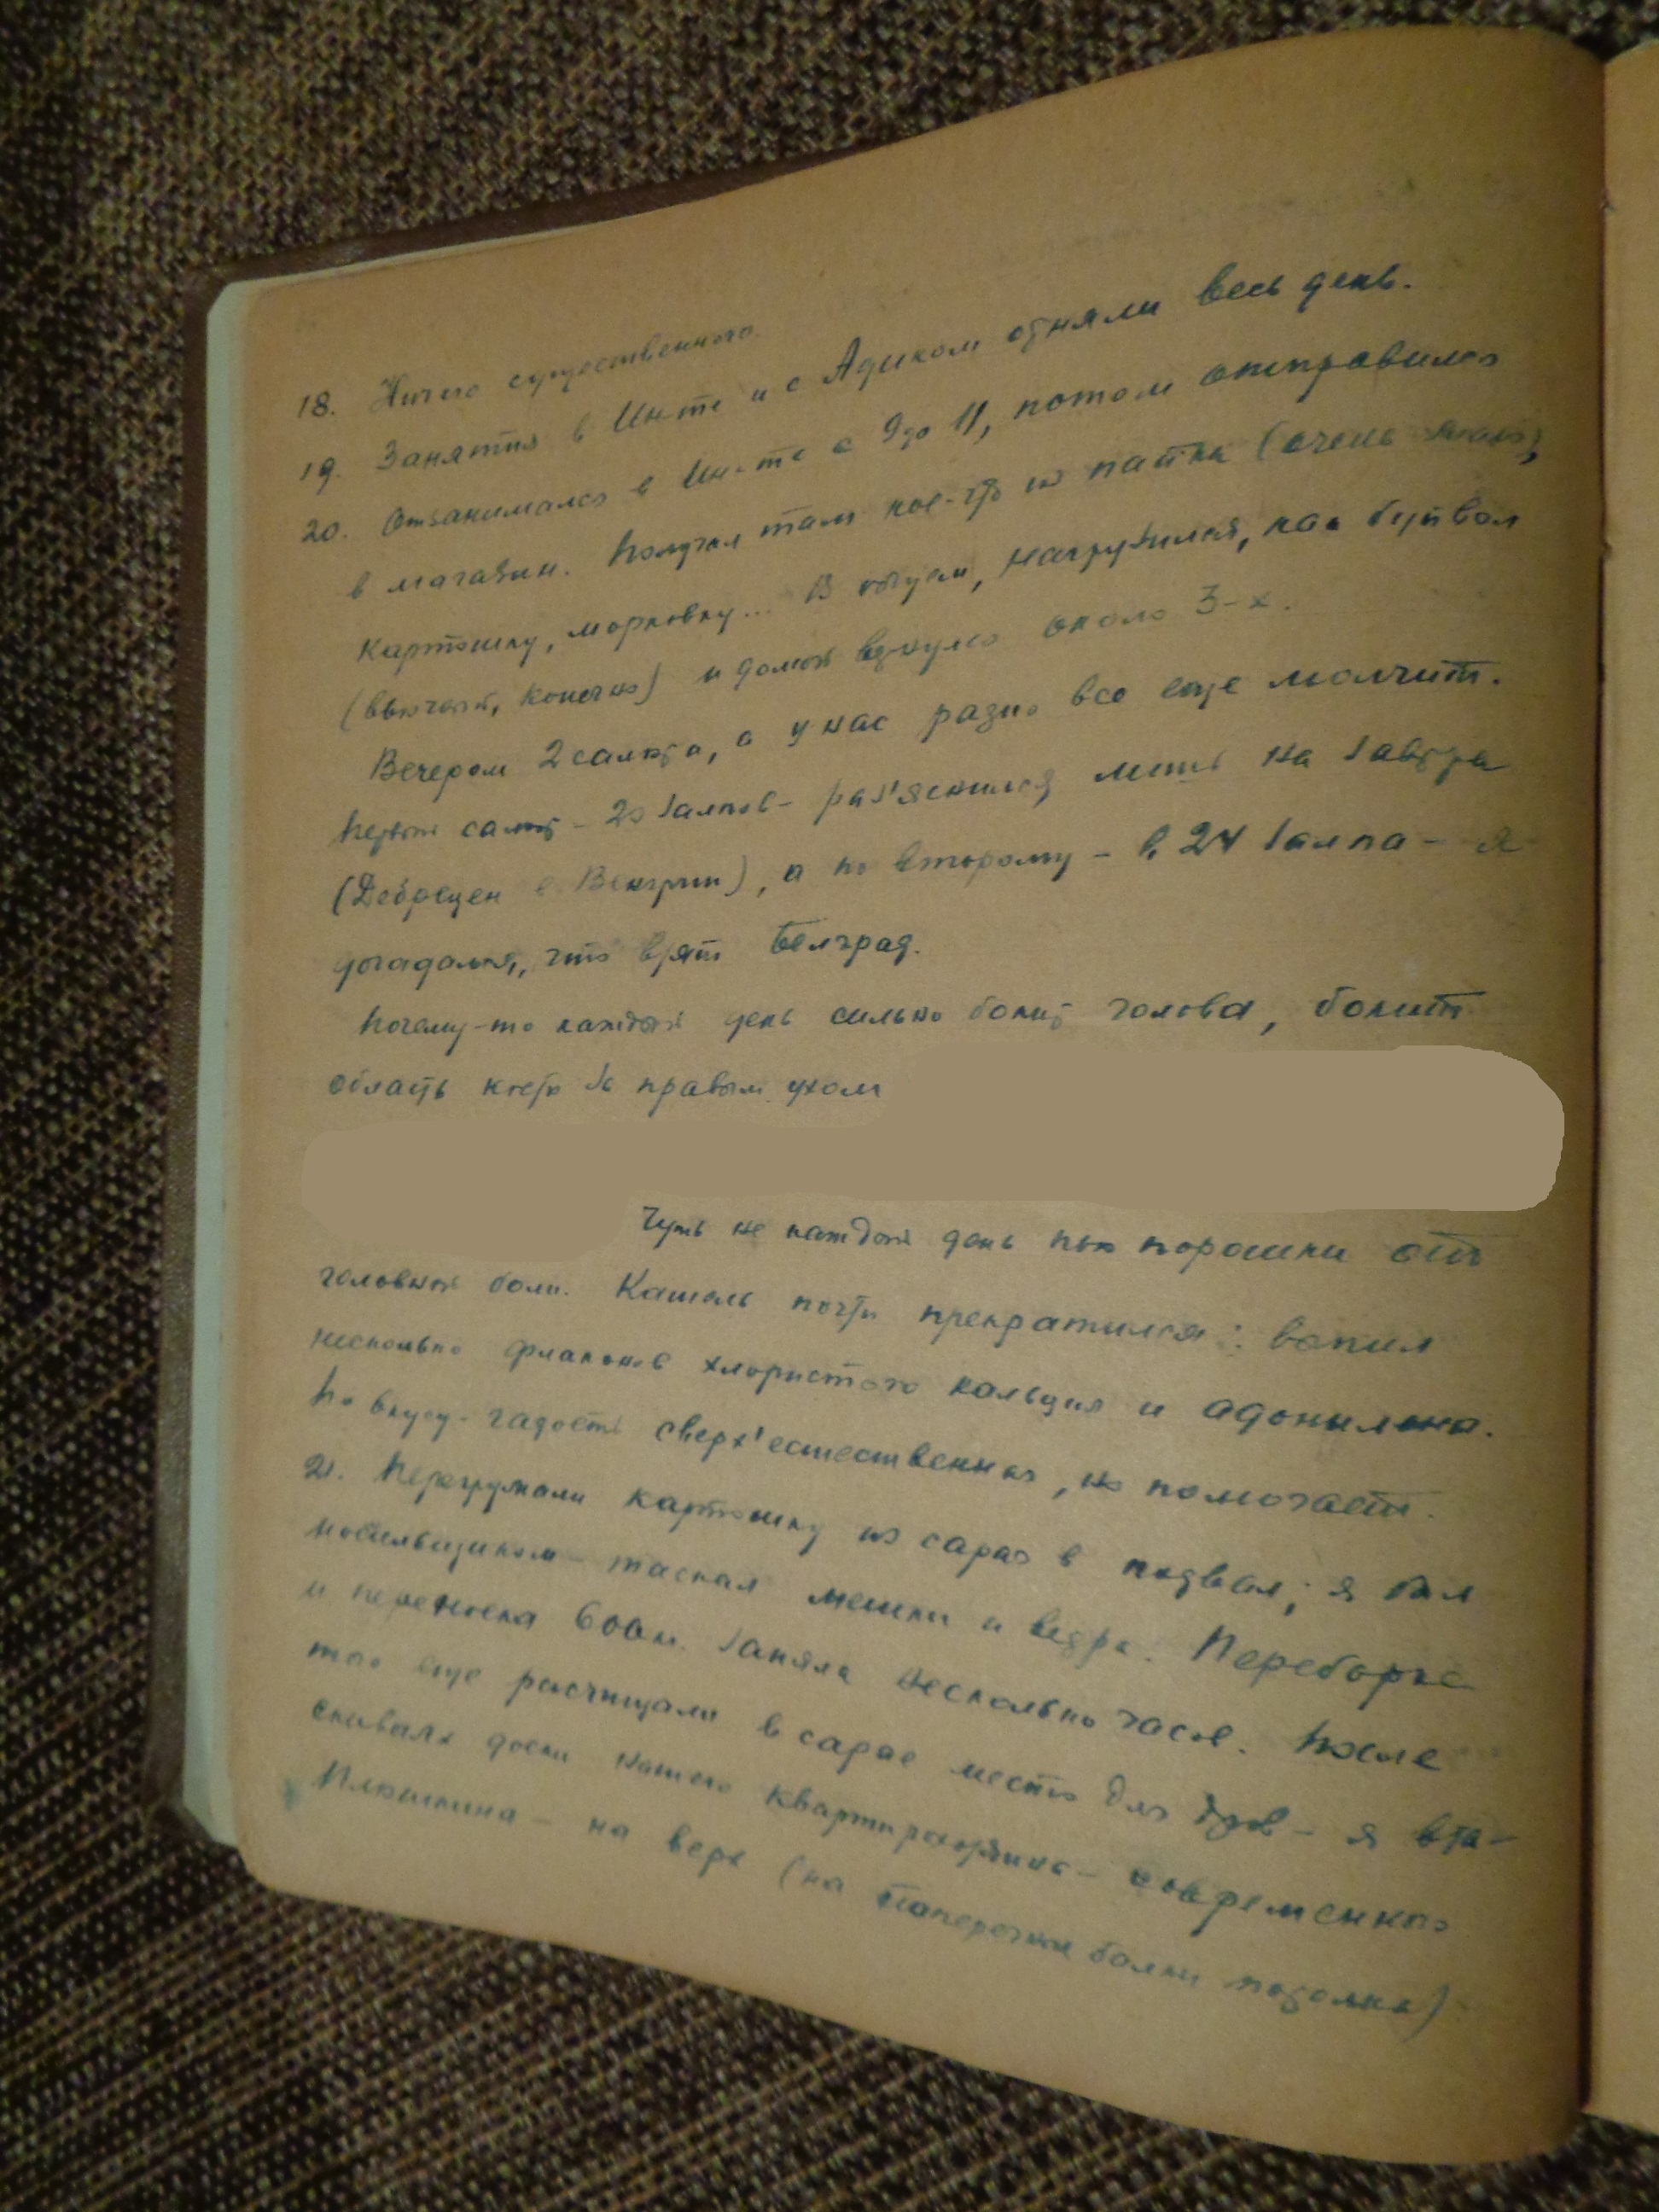 18. Ничего существенного.
19. Занятия в Ин-те и с Адиком отняли весь день.
20. Отзанимался в Ин-те с 9 до 11, потом отправился
в магазин. Получил там кое-что из пайка (очень мало),
картошку, морковку... В общем, нагрузился, как буйвол
(вьючный, конечно) и домой вернулся около 3-х.
Вечером 2 салюта, а у нас радио все еще молчит.
Первый салют - 20 залпов - раз'яснился лишь на завтра
(Дебрецен в Венгрии), а по второму - в 24 залпа - я
догадался, что взят Белград.
Почему-то каждый день сильно болит голова, болит
область кости за правым ухом
Чуть не каждый день пью порошки от
головной боли. Кашель почти прекратился: выпил
несколько флаконов хлористого кальция и адонилена.
По вкусу - гадость сверх'естественная, но помогает.
21. Перегружали картошку из сарая в подвал; я был
носильщиком - таскал мешки и ведра. Переборка
и переноска 600 к. заняла несколько часов. После
того еще расчищали в сарае место для дров - я вта-
скивал доски нашего квартирохозяина - современного
Плюшкина - на верх (на поперечные балки потолка)